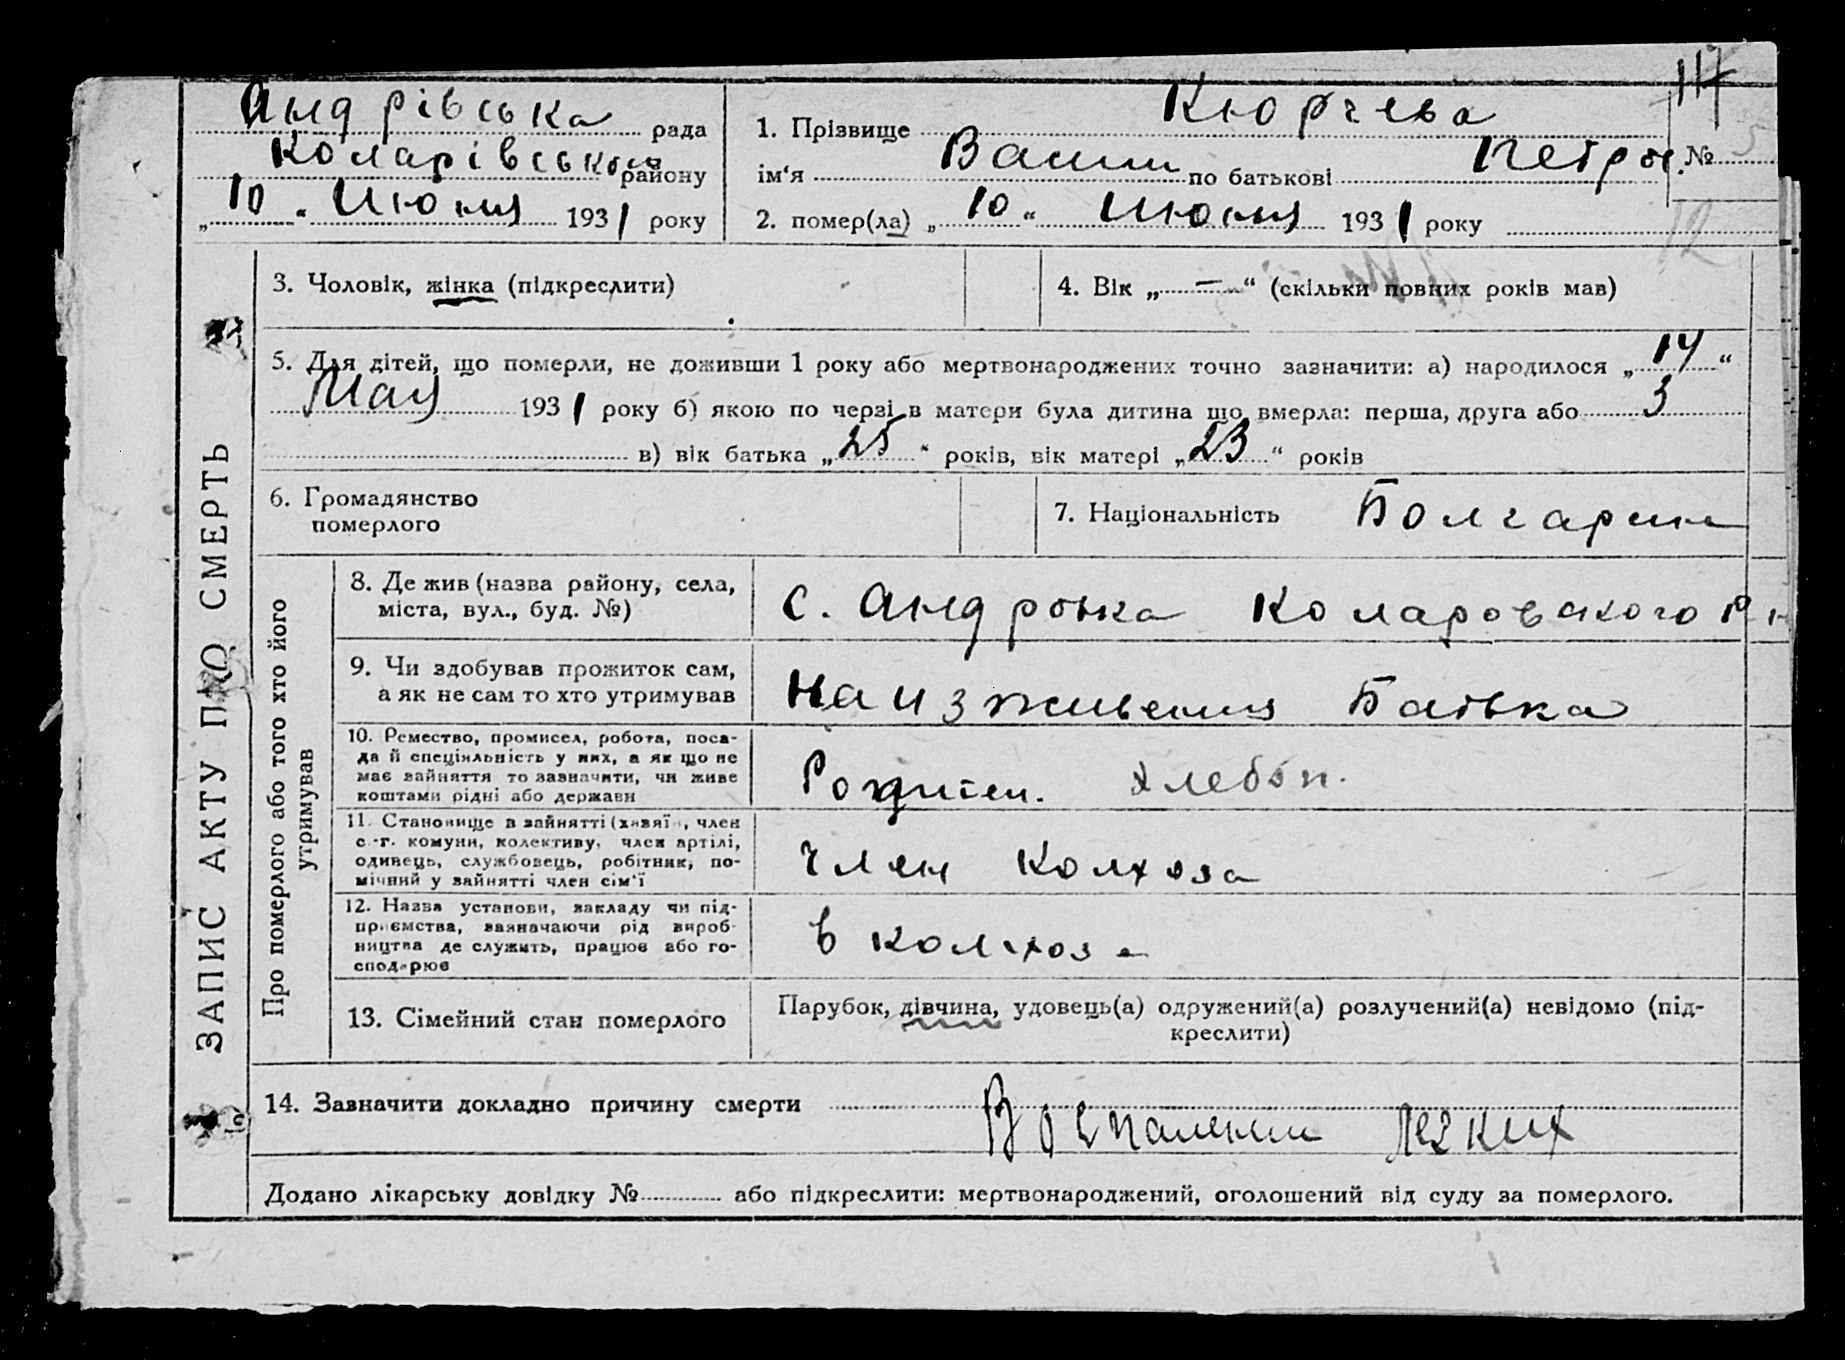 Андрівська рада
Коларівського району
„10“ Июния 1931 року
1. Прізвище Кюрчева
ім'я по батькові Петров. №
2. помер(ла) „10“ Июния 1931 року
117
12
ЗАПИС АКТУ ПРО СМЕРТЬ
3. Чоловік, жінка (підкреслити)
4. Вік „—“ (скільки повних років мав)
5. Для дітей, що померли, не доживши 1 року або мертвонароджених точно зазначити: а) народилося „14“
Мая 1931 року б) якою по черзі в матери була дитина що вмерла: перша, друга або 3
в) вік батька „25“ років, вік матері „23“ років
6. Громадянство
померлого
7. Національність Болгарин
Про померлого або того хто його
утримував
8. Де жив (назва району, села,
міста, вул., буд. №)
с. Андровка Коларовского Р н
9. Чи здобував прожиток сам,
а як не сам то хто утримував
На изживения Батька
10. Ремество, промисел, робота, поса-
да й спеціяльність у них, а як що не
має зайняття то зазначити, чи живе
коштами рідні або держави
Родител. хлебоп.
11. Становище в зайнятті (хазяїн, член
с.-г. комуни, колективу, член артілі,
одинець, службовець, робітник, по-
мічний у зайнятті член сім'ї
Член Колхоза
12. Назва установи, закладу чи під-
приємства, зазначаючи рід вироб-
ництва де служить, працює або го-
сподарює
в колхоза
13. Сімейний стан померлого
Парубок, дівчина, удовець(а) одружений(а) розлучений(а) невідомо (під-
креслити)
14. Зазначити докладно причину смерти
Воспалении Легких
Додано лікарську довідку № або підкреслити: мертвонароджений, оголошений від суду за померлого.